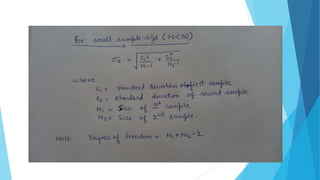 for small sample size (N<30)
σ_D = √(S₁²/(N₁-1) + S₂²/(N₂-1))
where
S₁ = standard deviation of first sample
S₂ = standard deviation of second sample
N₁ = Size of Iˢᵗ sample
N₂ = Size of IIⁿᵈ sample.
Degree of freedom = N₁+N₂-2